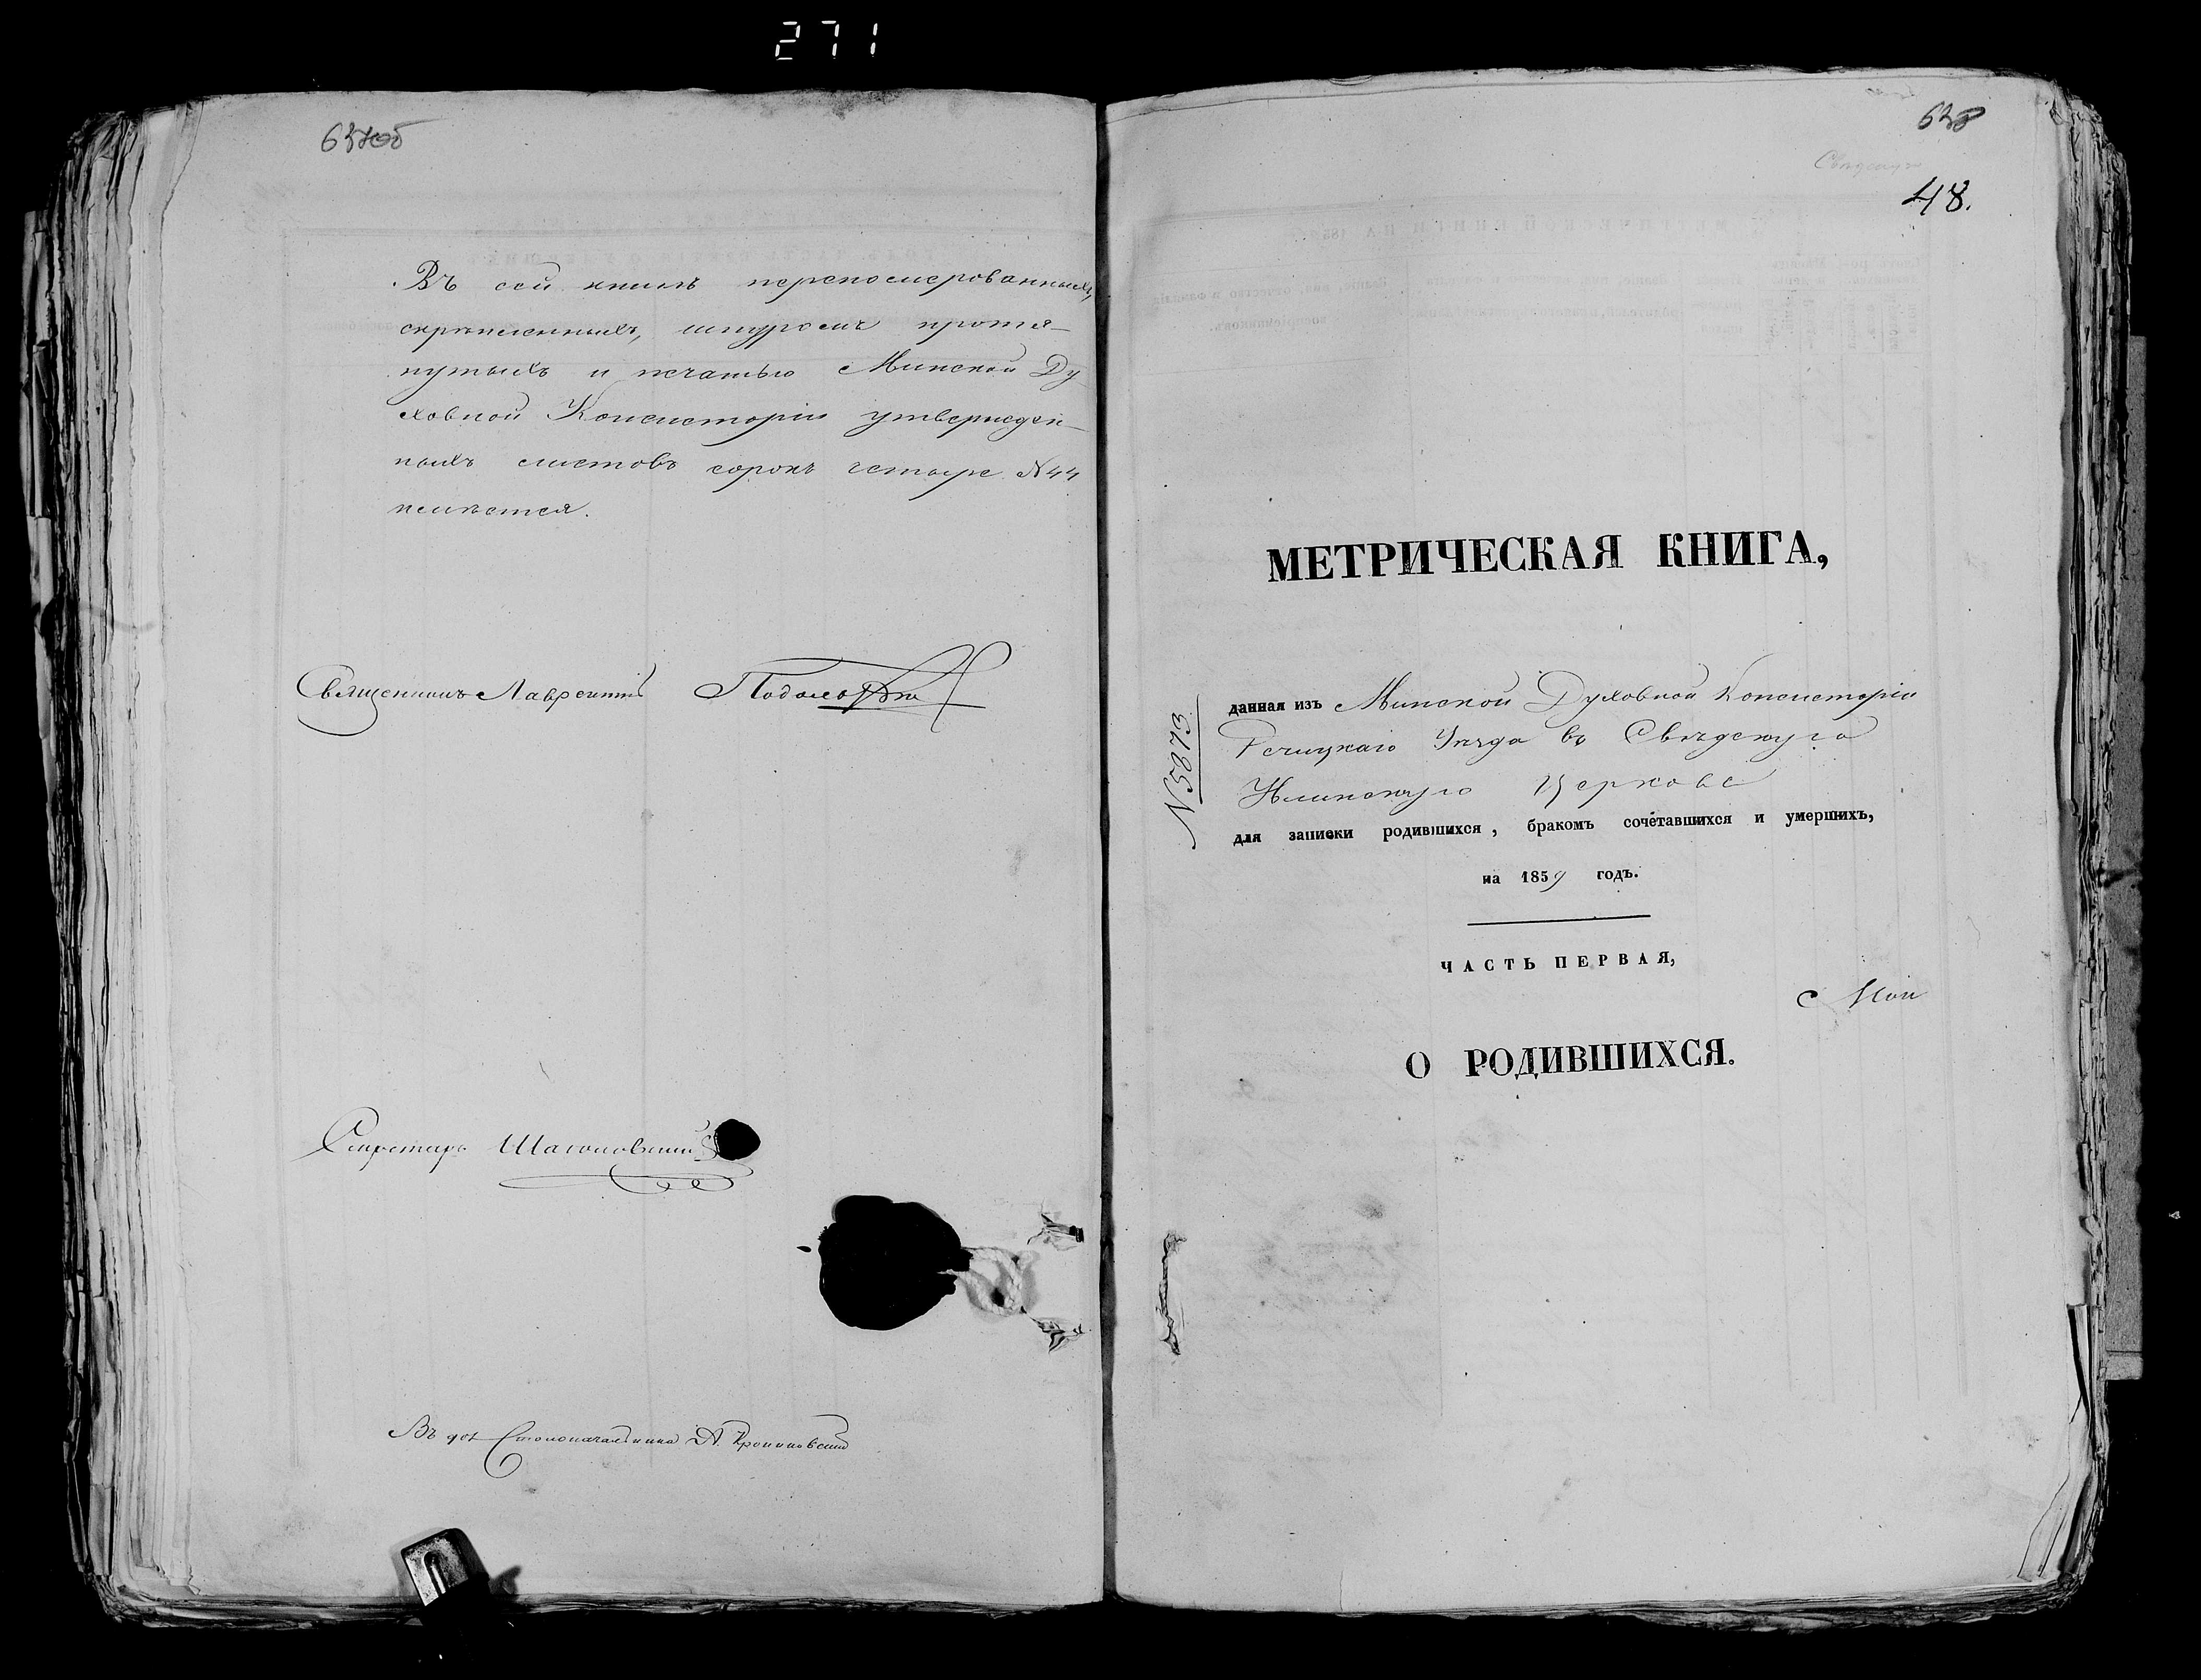 271
637об
Въ сей книгѣ перенумерованныхъ,
скрѣпленныхъ, шнуромъ протя-
нутыхъ и печатью Минской Ду
ховной Консисторіи утвержден-
ныхъ листовъ сорокъ четыре N 44
имѣется.
Священникъ Лаврентій
Секретарь
Въ дол Столоначальника А.
638
48.
МЕТРИЧЕСКАЯ КНИГА,
N 5873
данная изъ Минской Духовной Консисторіи
Речицкаго Уѣзда въ Свѣдскую
Церковь
для записки родившихся, бракомъ сочетавшихся и умершихъ,
на 1859 годъ.
ЧАСТЬ ПЕРВАЯ,
О РОДИВШИХСЯ.